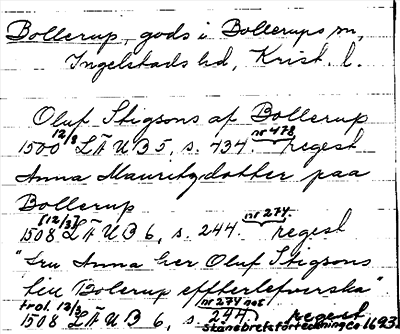 Bollerup, gods i Bollerups sn,
Ingelstads hd, Krist. l.
Oluf Stigsons af Bollerup
1500 12/3 LÄUB 5, s. 434. nr 478 regest
Anna Mauritzdotter paa
Bollerup
1508 [12/3] LÄUB 6, s. 244. nr 274. regest
"Fru Anna her Oluf Stigsons
till Bolerup effterleferska"
1508 trol. 12/3 LÄUB 6, s. 244. nr 274 not regest
Skånebrefsförteckning c. 1693.